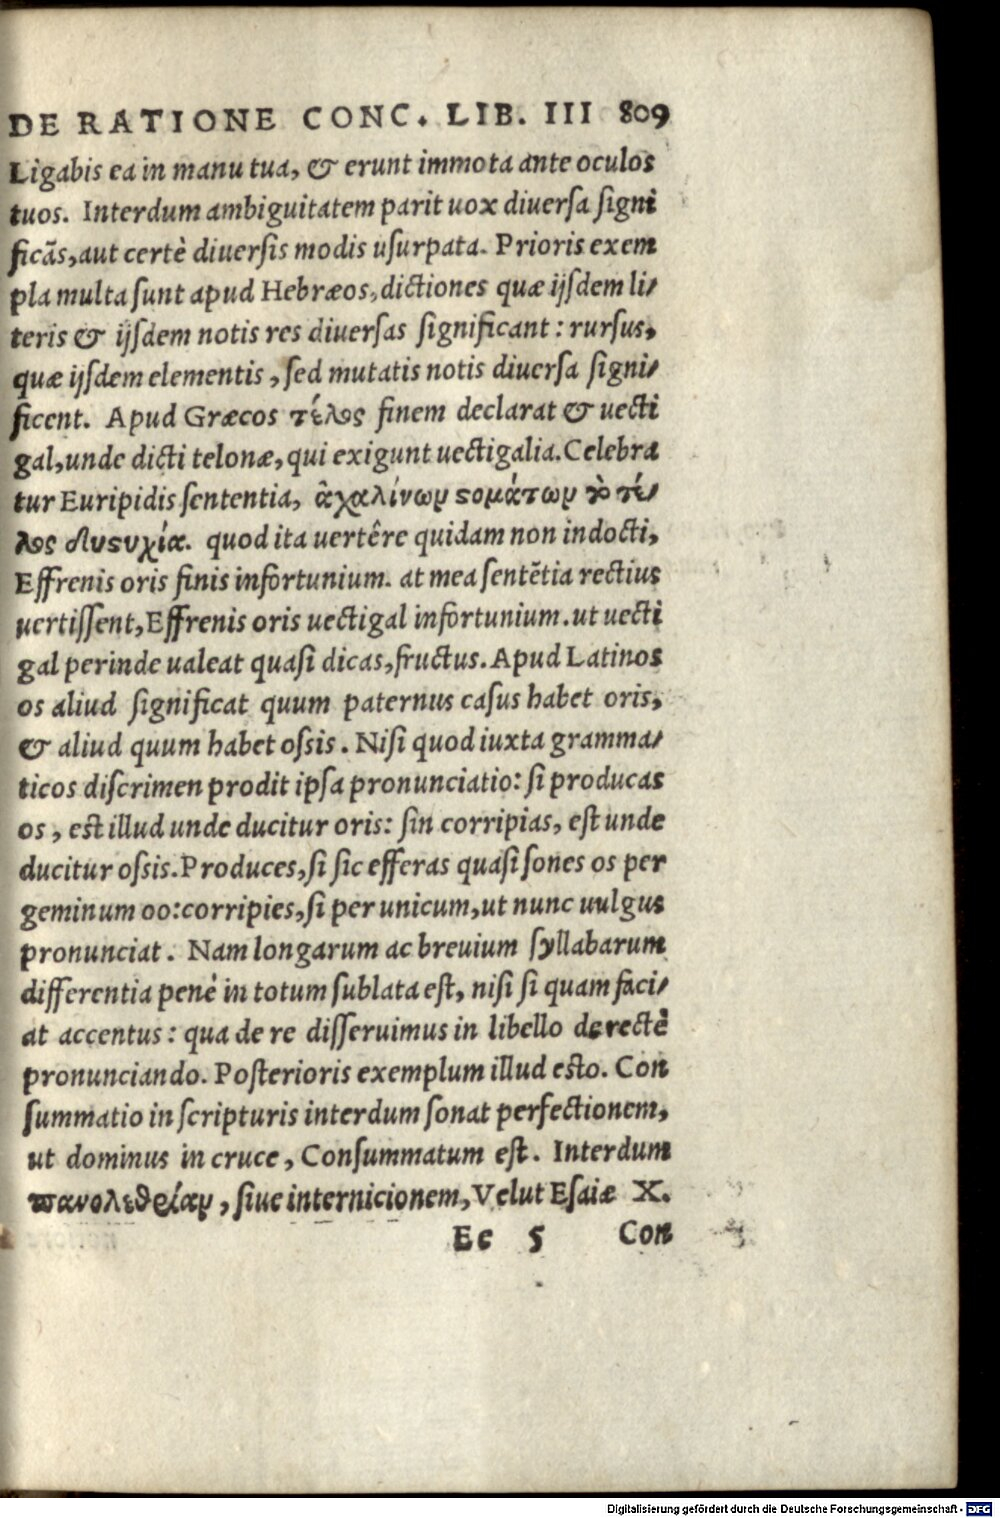 DE RATIONE CONC. LIB. III 809
Ligabis ea in manu tua, & erunt immota ante oculos
tuos. Interdum ambiguitatem parit uox diuersa signi
ficãs, aut certè diuersis modis usurpata. Prioris exem
pla multa sunt apud Hebræos, dictiones quæ ijsdem li⸗
teris & ijsdem notis res diuersas significant: rursus,
quæ ijsdem elementis, sed mutatis notis diuersa signi⸗
ficent. Apud Græcos τέλος finem declarat & uecti
gal, unde dicti telonæ, qui exigunt uectigalia. Celebra
tur Euripidis sententia, ἀχαλίνων στομάτων τὸ τέ⸗
λος δυστυχία. quod ita uertêre quidam non indocti,
Effrenis oris finis infortunium. at mea sentẽtia rectius
uertissent, Effrenis oris uectigal infortunium. ut uecti
gal perinde ualeat quasi dicas, fructus. Apud Latinos
os aliud significat quum paternus casus habet oris,
& aliud quum habet ossis. Nisi quod iuxta gramma⸗
ticos discrimen prodit ipsa pronunciatio: si producas
os, est illud unde ducitur oris: sin corripias, est unde
ducitur ossis. Produces, si sic efferas quasi sones os per
geminum oo: corripies, si per unicum, ut nunc uulgus
pronunciat. Nam longarum ac breuium syllabarum
differentia penè in totum sublata est, nisi si quam faci⸗
at accentus: qua de re disseruimus in libello de rectè
pronunciando. Posterioris exemplum illud esto. Con
summatio in scripturis interdum sonat perfectionem,
ut dominus in cruce, Consummatum est. Interdum
πανολεθρίαν, siue internicionem, Velut Esaiæ X.
Ee 5 Con
Digitalisierung gefördert durch die Deutsche Forschungsgemeinschaft - DFG